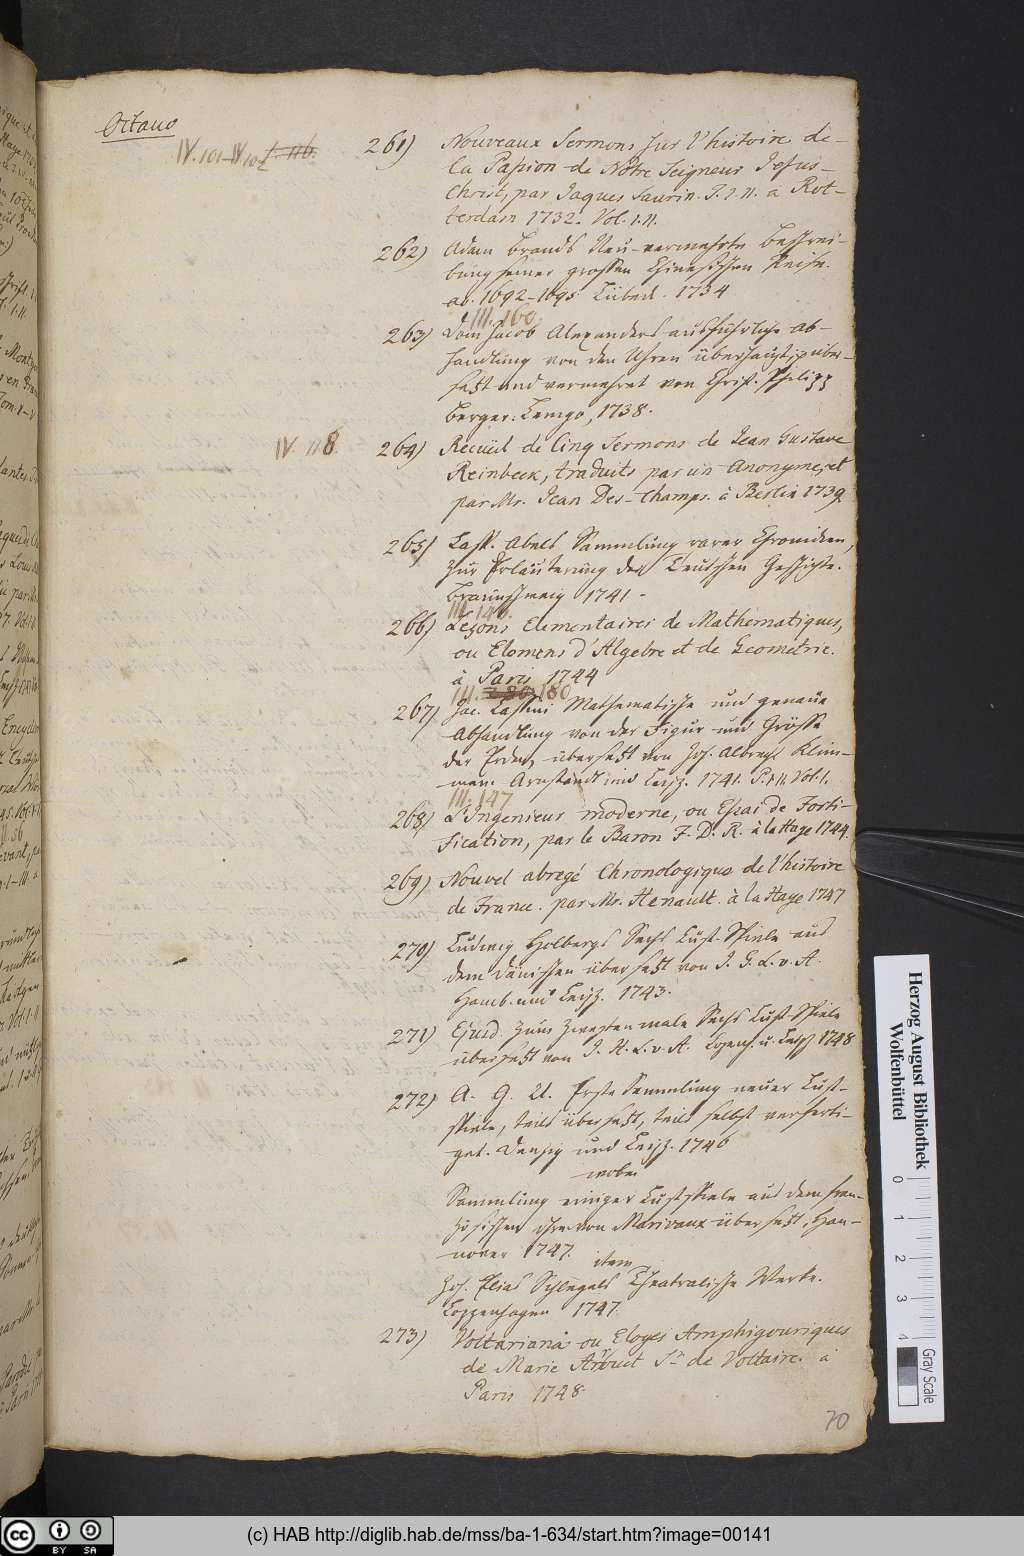 Octavo
IV. 101-IV 102 f. 116.
261) Nouveaux Sermons sur l'histoire de
la Passion de Nôtre Seigneur Jesus-
Christ, par Jaques Saurin. T. I. II. a Rot-
terdam 1732. Vol. I. II.
262) Adam Brands Neu-vermehrte Beschrei-
bung seiner grossen Chinesischen Reise.
ao. 1692-1695 Lübeck. 1734
III. 160
263) Dom Jacob Alexanders ausführliche Ab-
handlung von den Uhren überhaupt, über-
sezt und vermehret von Christ. Philipp
Berger. Lemgo, 1738.
IV. 118.
264) Recüeil de Cinq Sermons de Jean Gustave
Reinbeck, traduits par un Anonyme, et
par Mr. Jean Des-champs. à Berlin 1739.
265) Casp. Abels Sammlung rarer Chroniken,
zur Erläuterung der Teutschen Geschichte.
Braunschweig 1741.
III. 146.
266) Leçons Elementaires de Mathematiques,
ou Elemens d'Algebre et de Geometrie.
à Paris 1744
III. 180
267) Jac. Cassini Mathematische und genaue
Abhandlung von der Figur und Grösse
der Erden, übersezt von Joh. Albrecht Klim-
men. Arnstadt und Leipz. 1741. P. I. II. Vol. I.
III. 147
268) L'Ingenieur moderne, ou Essai de Forti-
fication, par le Baron F. D. R. à la Haye 1744.
269) Nouvel abregé Chronologique de l'histoire
de France. par Mr. Henault. à la Haye 1747
270) Ludwig Holbergs Sechs Lust-Spiele aus
dem Dänischen übersezt von J. G. L. v. A.
Hamb. und Leipz. 1743.
271) Ejusd. zum zweyten male Sechs Lust-Spiele
übersezt von J. G. L. v. A. Copenh. u. Leipz 1748
272) A. G. U. Erste Sammlung neuer Lust-
spiele, teils übersezt, teils selbst verferti-
get. Danzig und Leipz. 1746
wobei
Sammlung einiger Lustspiele aus dem Fran-
zösischen von Marivaux übersezt, Han-
nover 1747.
item
Joh. Elias Schlegels Theatralische Werke.
Coppenhagen 1747.
273) Voltariana ou Eloges Amphigouriques
de Marie Arouet Sr de Voltaire. à
Paris 1748.
70
Herzog August Bibliothek
Wolfenbüttel
0 1 2 3 4
Gray Scale
(c) HAB http://diglib.hab.de/mss/ba-1-634/start.htm?image=00141
cc BY SA